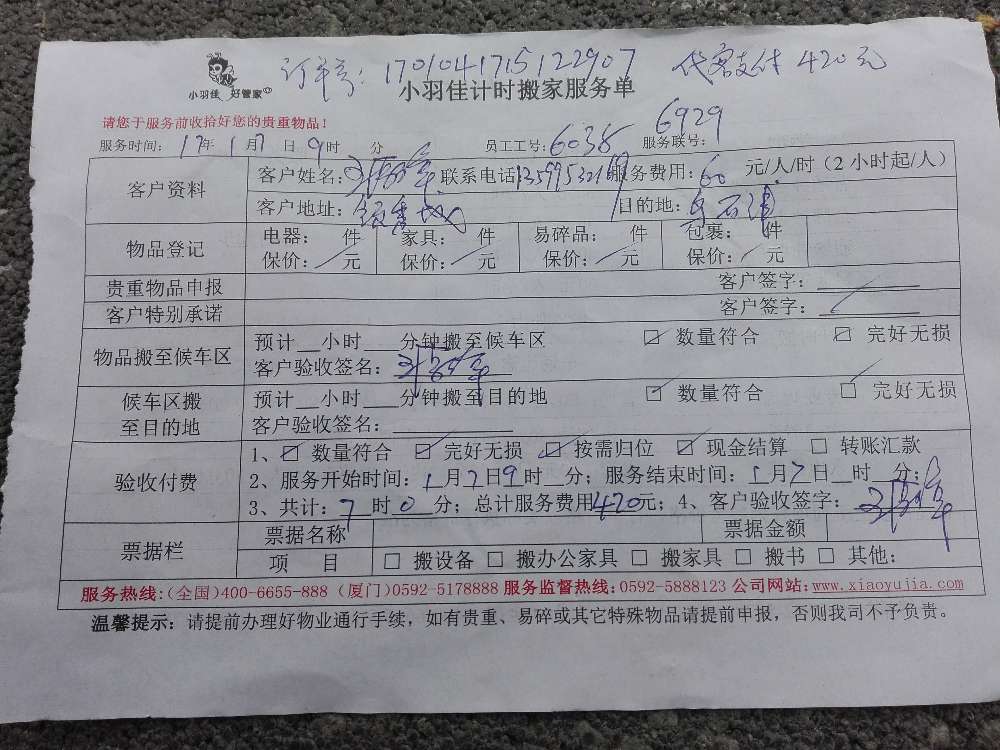 订单号: 170104175122907 代客支付 420元
小羽佳 好管家
小羽佳计时搬家服务单
请您于服务前收拾好您的贵重物品!
服务时间: 17年 1月7日9时 分 员工工号: 6038 服务联号: 6929
客户资料 客户姓名: 联系电话 服务费用: 60 元/人/时 (2小时起/人)
客户地址: 目的地:
物品登记 电器: 件 家具: 件 易碎品: 件 包裹: 件
保价: 元 保价: 元 保价: 元 保价: 元
贵重物品申报 客户签字:
客户特别承诺 客户签字:
物品搬至候车区 预计__小时___分钟搬至候车区 ☑ 数量符合 ☑ 完好无损
客户验收签名:
候车区搬至目的地 预计__小时___分钟搬至目的地 ☑ 数量符合 ☑ 完好无损
客户验收签名:
验收付费 1、☑ 数量符合 ☑ 完好无损 ☑ 按需归位 ☑ 现金结算 □ 转账汇款
2、服务开始时间: 1月7日9时__分; 服务结束时间: 1月7日__时__分;
3、共计: 7时0分; 总计服务费用420元; 4、客户验收签字:
票据栏 票据名称 票据金额
项 目 □ 搬设备 □ 搬办公家具 □ 搬家具 □ 搬书 □ 其他:
服务热线:(全国)400-6655-888 (厦门)0592-5178888 服务监督热线:0592-5888123 公司网站:www.xiaoyujia.com
温馨提示: 请提前办理好物业通行手续, 如有贵重、易碎或其它特殊物品请提前申报, 否则我司不予负责。